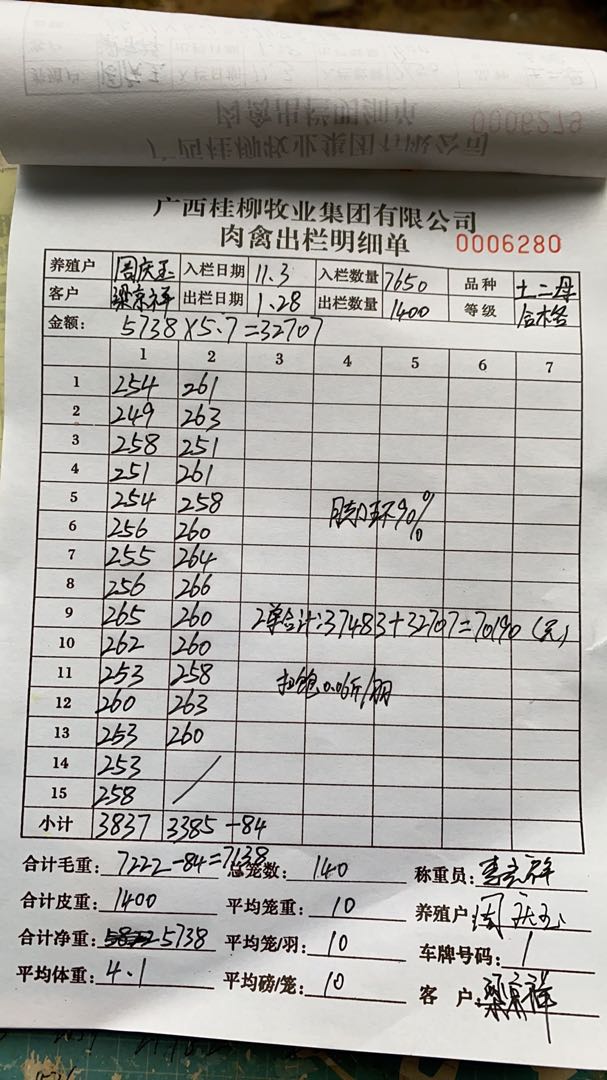 肉禽出栏明细单
0006279
广西桂柳牧业集团有限公司
广西桂柳牧业集团有限公司
肉禽出栏明细单 0006280
养殖户 周庆玉 入栏日期 11.3 入栏数量 7650 品种 土二母
客户 梁京祥 出栏日期 1.28 出栏数量 1400 等级 合格
金额: 5738×5.7=32707
1 2 3 4 5 6 7
1 254 261
2 249 263
3 258 251
4 251 261
5 254 258
6 256 260
7 255 264
8 256 266
9 265 260 2单合计:37483+32707=70190(元)
10 262 260
11 253 258 扣饱0.06斤/羽
12 260 263
13 253 260
14 253
15 258
90%
小计 3837 3385 -84
合计毛重: 7222-84=7138 总笼数: 140 称重员:
合计皮重: 1400 平均笼重: 10 养殖户 周庆玉
合计净重: 5738 平均笼/羽: 10 车牌号码: 1
平均体重: 4.1 平均磅/笼: 10 客户: 梁京祥